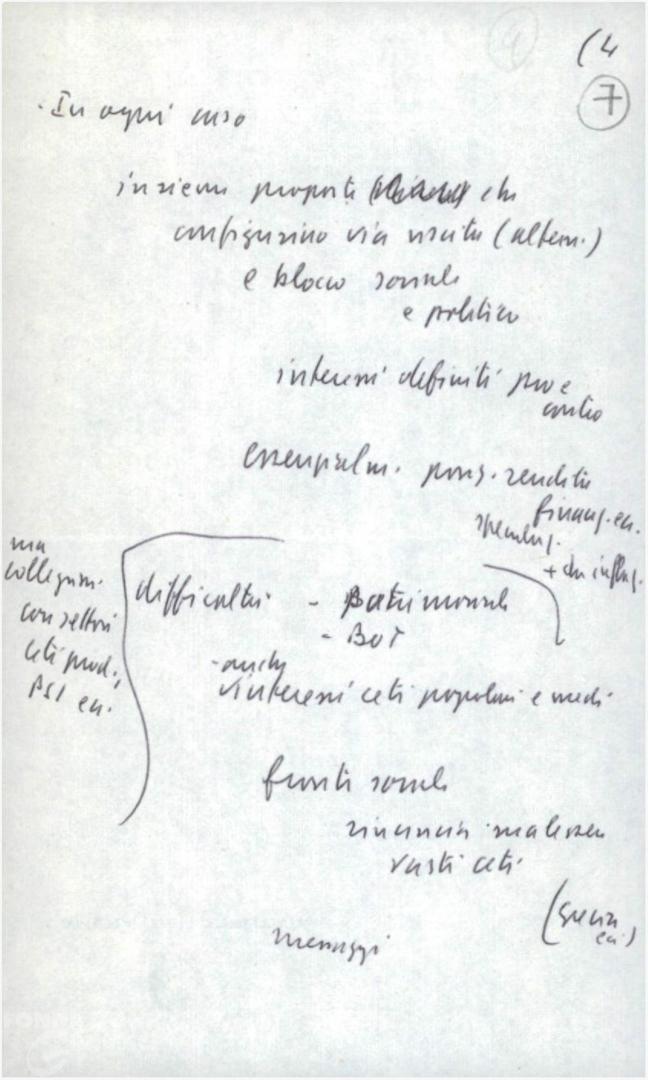 (4
7
. In ogni caso
insieme proposte che
configurino via uscita (altern.)
e blocco sociale
e politico
interessi definiti pro e
contro
essenzialm. poss. rendita
finanz. ecc.
+ che
ma
collegam.
con settori
ceti prod.,
PSI ecc.
difficoltà - Patrimoniale
- BOT
- anche
interessi ceti popolari e medi
fronte sociale
rinuncia
vasti ceti
(
ecc.)
messaggi